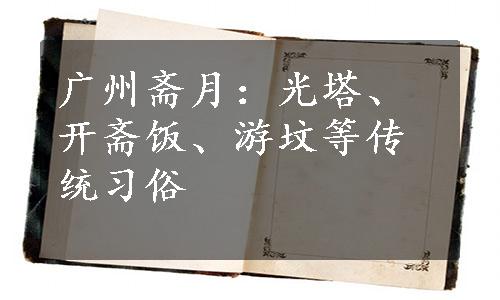 广州斋月：光塔、
开斋饭、游坟等传
统习俗